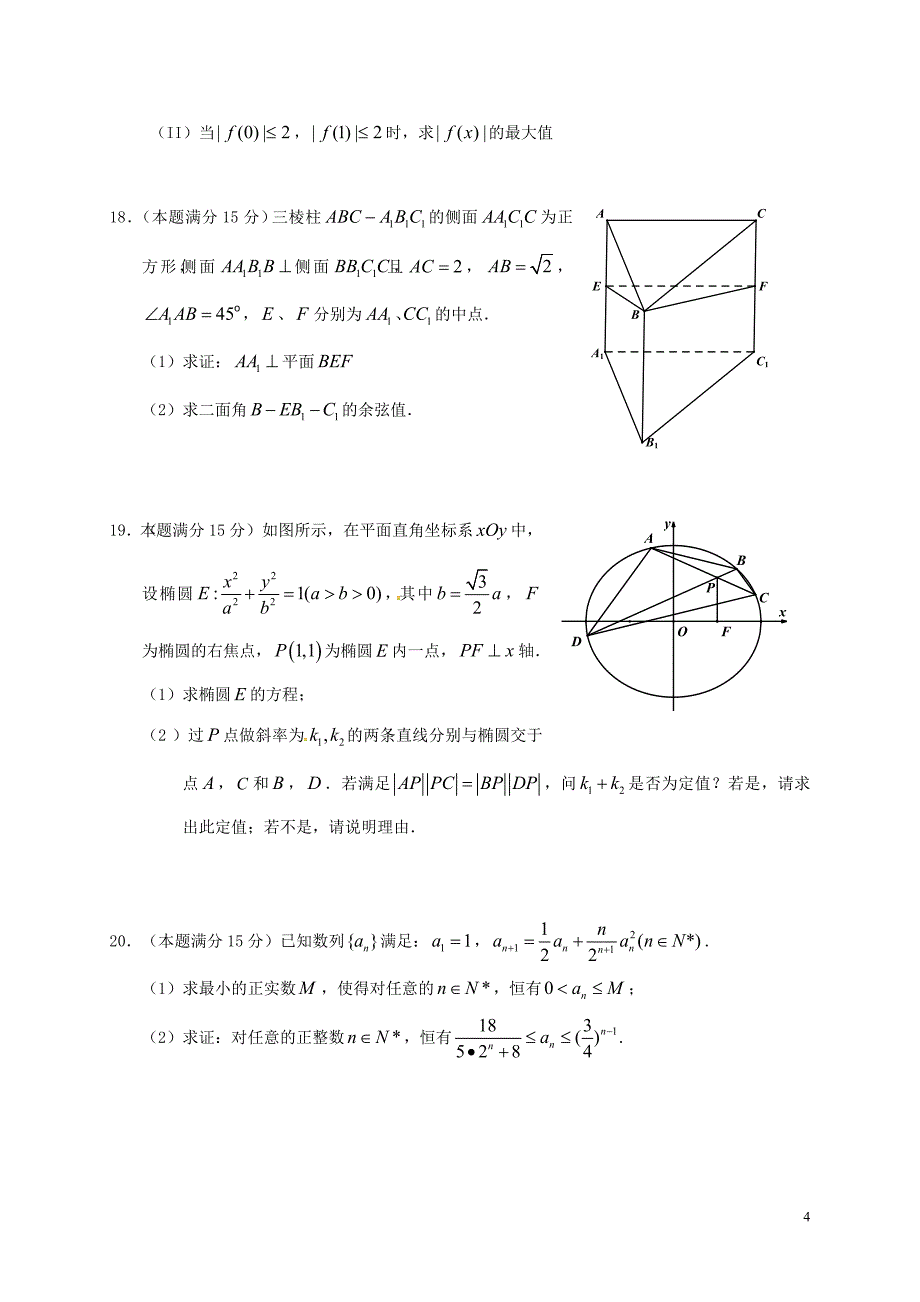 （II）当|f(0)|≤2，|f(1)|≤2时，求|f(x)|的最大值
18．（本题满分15分）三棱柱ABC−A₁B₁C₁的侧面AA₁C₁C为正
方形，侧面AA₁B₁B⊥侧面BB₁C₁C，且AC=2，AB=√2，
∠A₁AB=45°，E、F分别为AA₁、CC₁的中点．
（1）求证：AA₁⊥平面BEF
（2）求二面角B−EB₁−C₁的余弦值．
A
C
E
F
B
A₁
C₁
B₁
19．（本题满分15分）如图所示，在平面直角坐标系xOy中，
设椭圆E:x²/a²+y²/b²=1(a>b>0)，其中b=√3/2 a，F
为椭圆的右焦点，P(1,1)为椭圆E内一点，PF⊥x轴．
（1）求椭圆E的方程；
（2 ）过P点做斜率为k₁,k₂的两条直线分别与椭圆交于
点A，C和B，D．若满足|AP||PC|=|BP||DP|，问k₁+k₂是否为定值？若是，请求
出此定值；若不是，请说明理由．
y
A
B
P
C
x
D
O
F
20．（本题满分15分）已知数列{aₙ}满足：a₁=1，aₙ₊₁=1/2 aₙ+n/2ⁿ⁺¹ aₙ²(n∈N*)．
（1）求最小的正实数M，使得对任意的n∈N*，恒有0<aₙ≤M；
（2）求证：对任意的正整数n∈N*，恒有18/(5•2ⁿ+8)≤aₙ≤(3/4)ⁿ⁻¹．
4